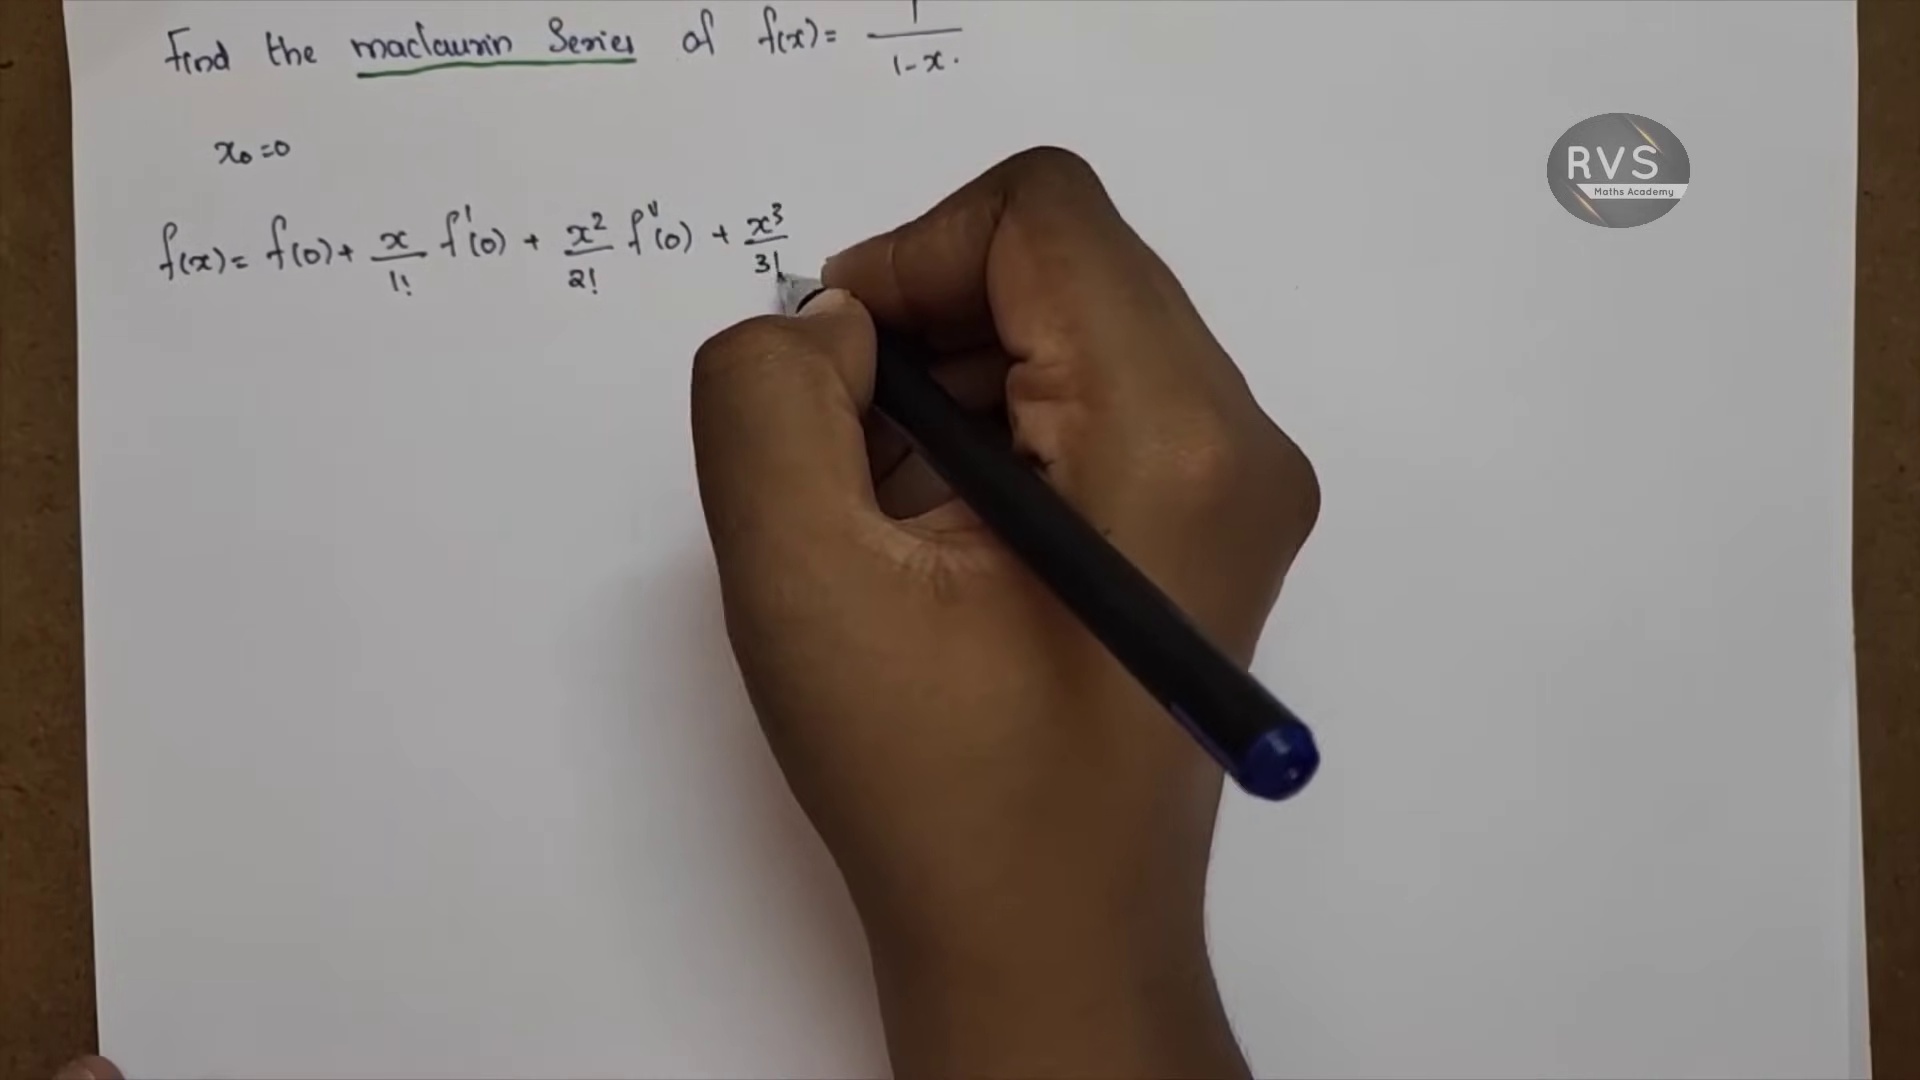 Find the maclaurin Series of f(x) = 1/(1-x).
x₀=0
f(x) = f(0) + x/1! f'(0) + x²/2! f''(0) + x³/3!
RVS
Maths Academy